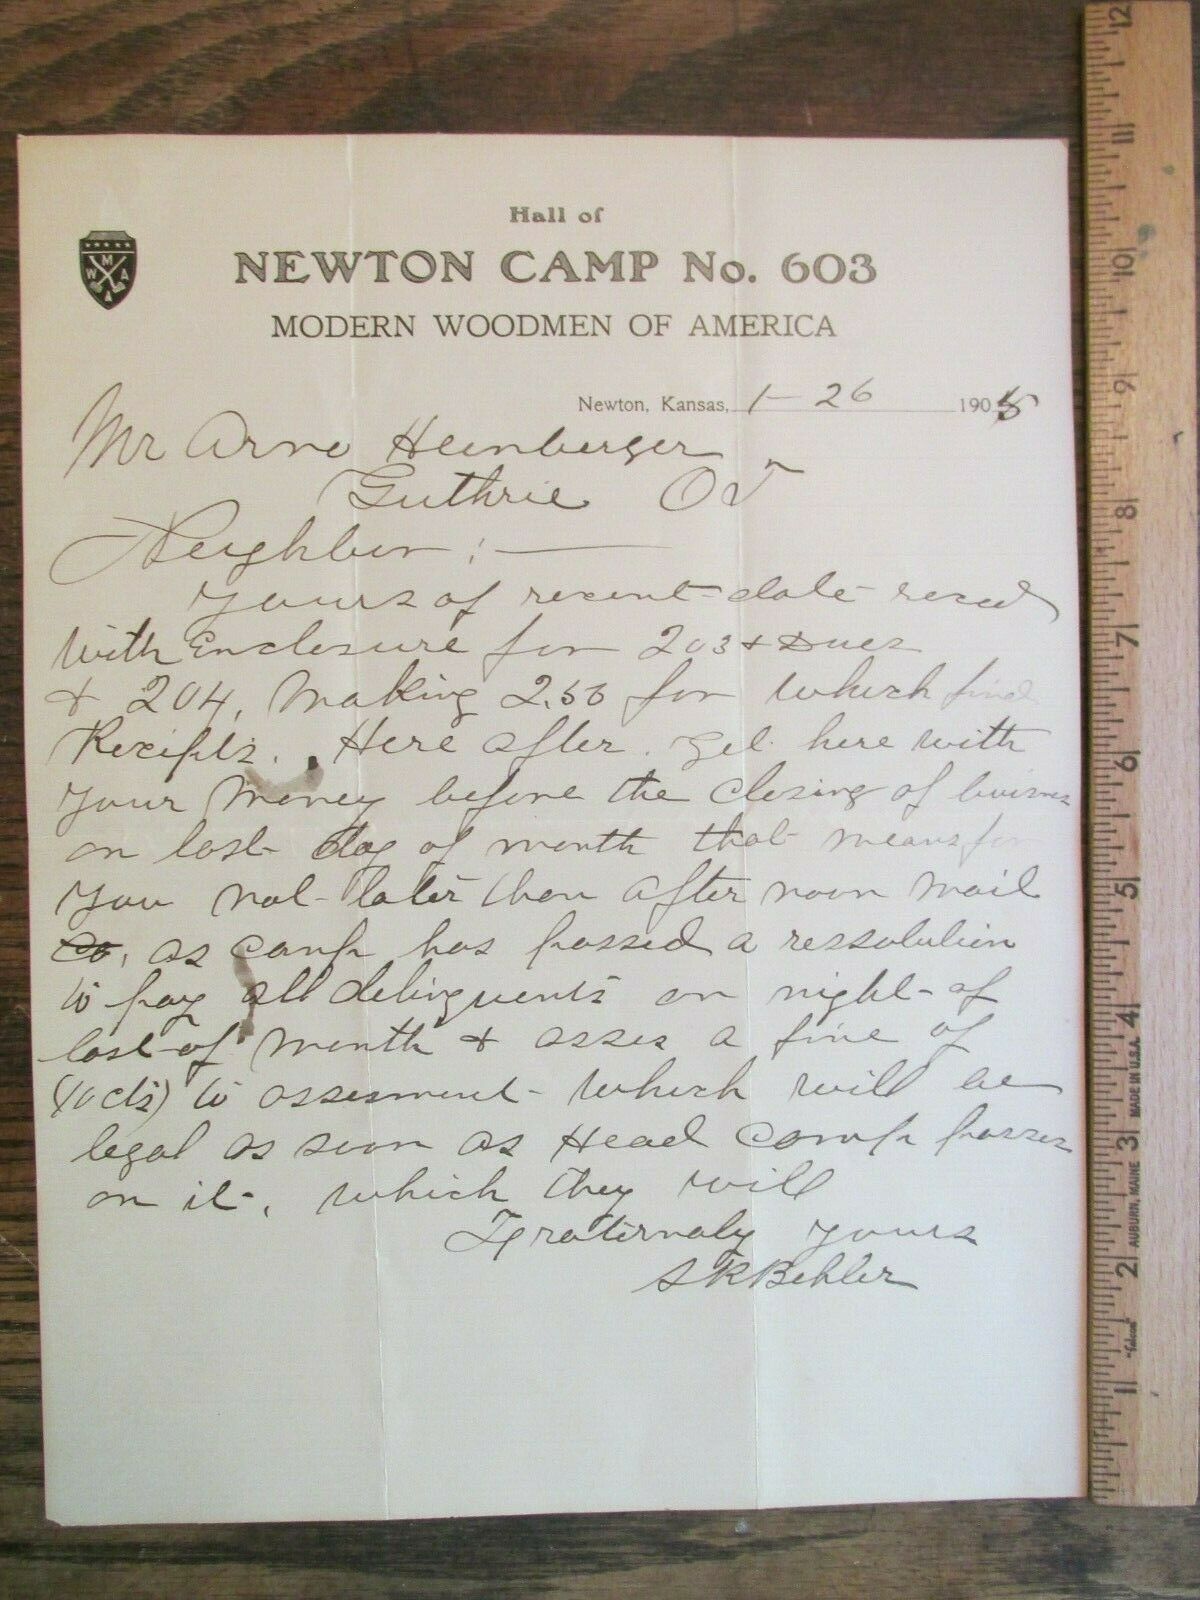 Hall of
NEWTON CAMP No. 603
MODERN WOODMEN OF AMERICA
M
W A
A
Newton, Kansas, 1-26 1905
Mr Arno Heinberger
Guthrie O T
Neighbor ;
Yours of recent date recd
with Enclosure for 203 + Dues
+ 204, Making 2.50 for which find
Receipts. Here after. get here with
your money before the closing of buisnes
on last day of month that means for
you not later than after noon mail
as camp has passed a ressolution
to pay all delinquents on night of
last of month + asses a fine of
(10 cts) to assesment which will be
legal as soon as Head camp passes
on it, which they will
Fraternaly yours
S K Behler
12
11
10
9
8
7
6
5
4
3
2
1
MADE IN U.S.A.
AUBURN, MAINE
"Falcon"